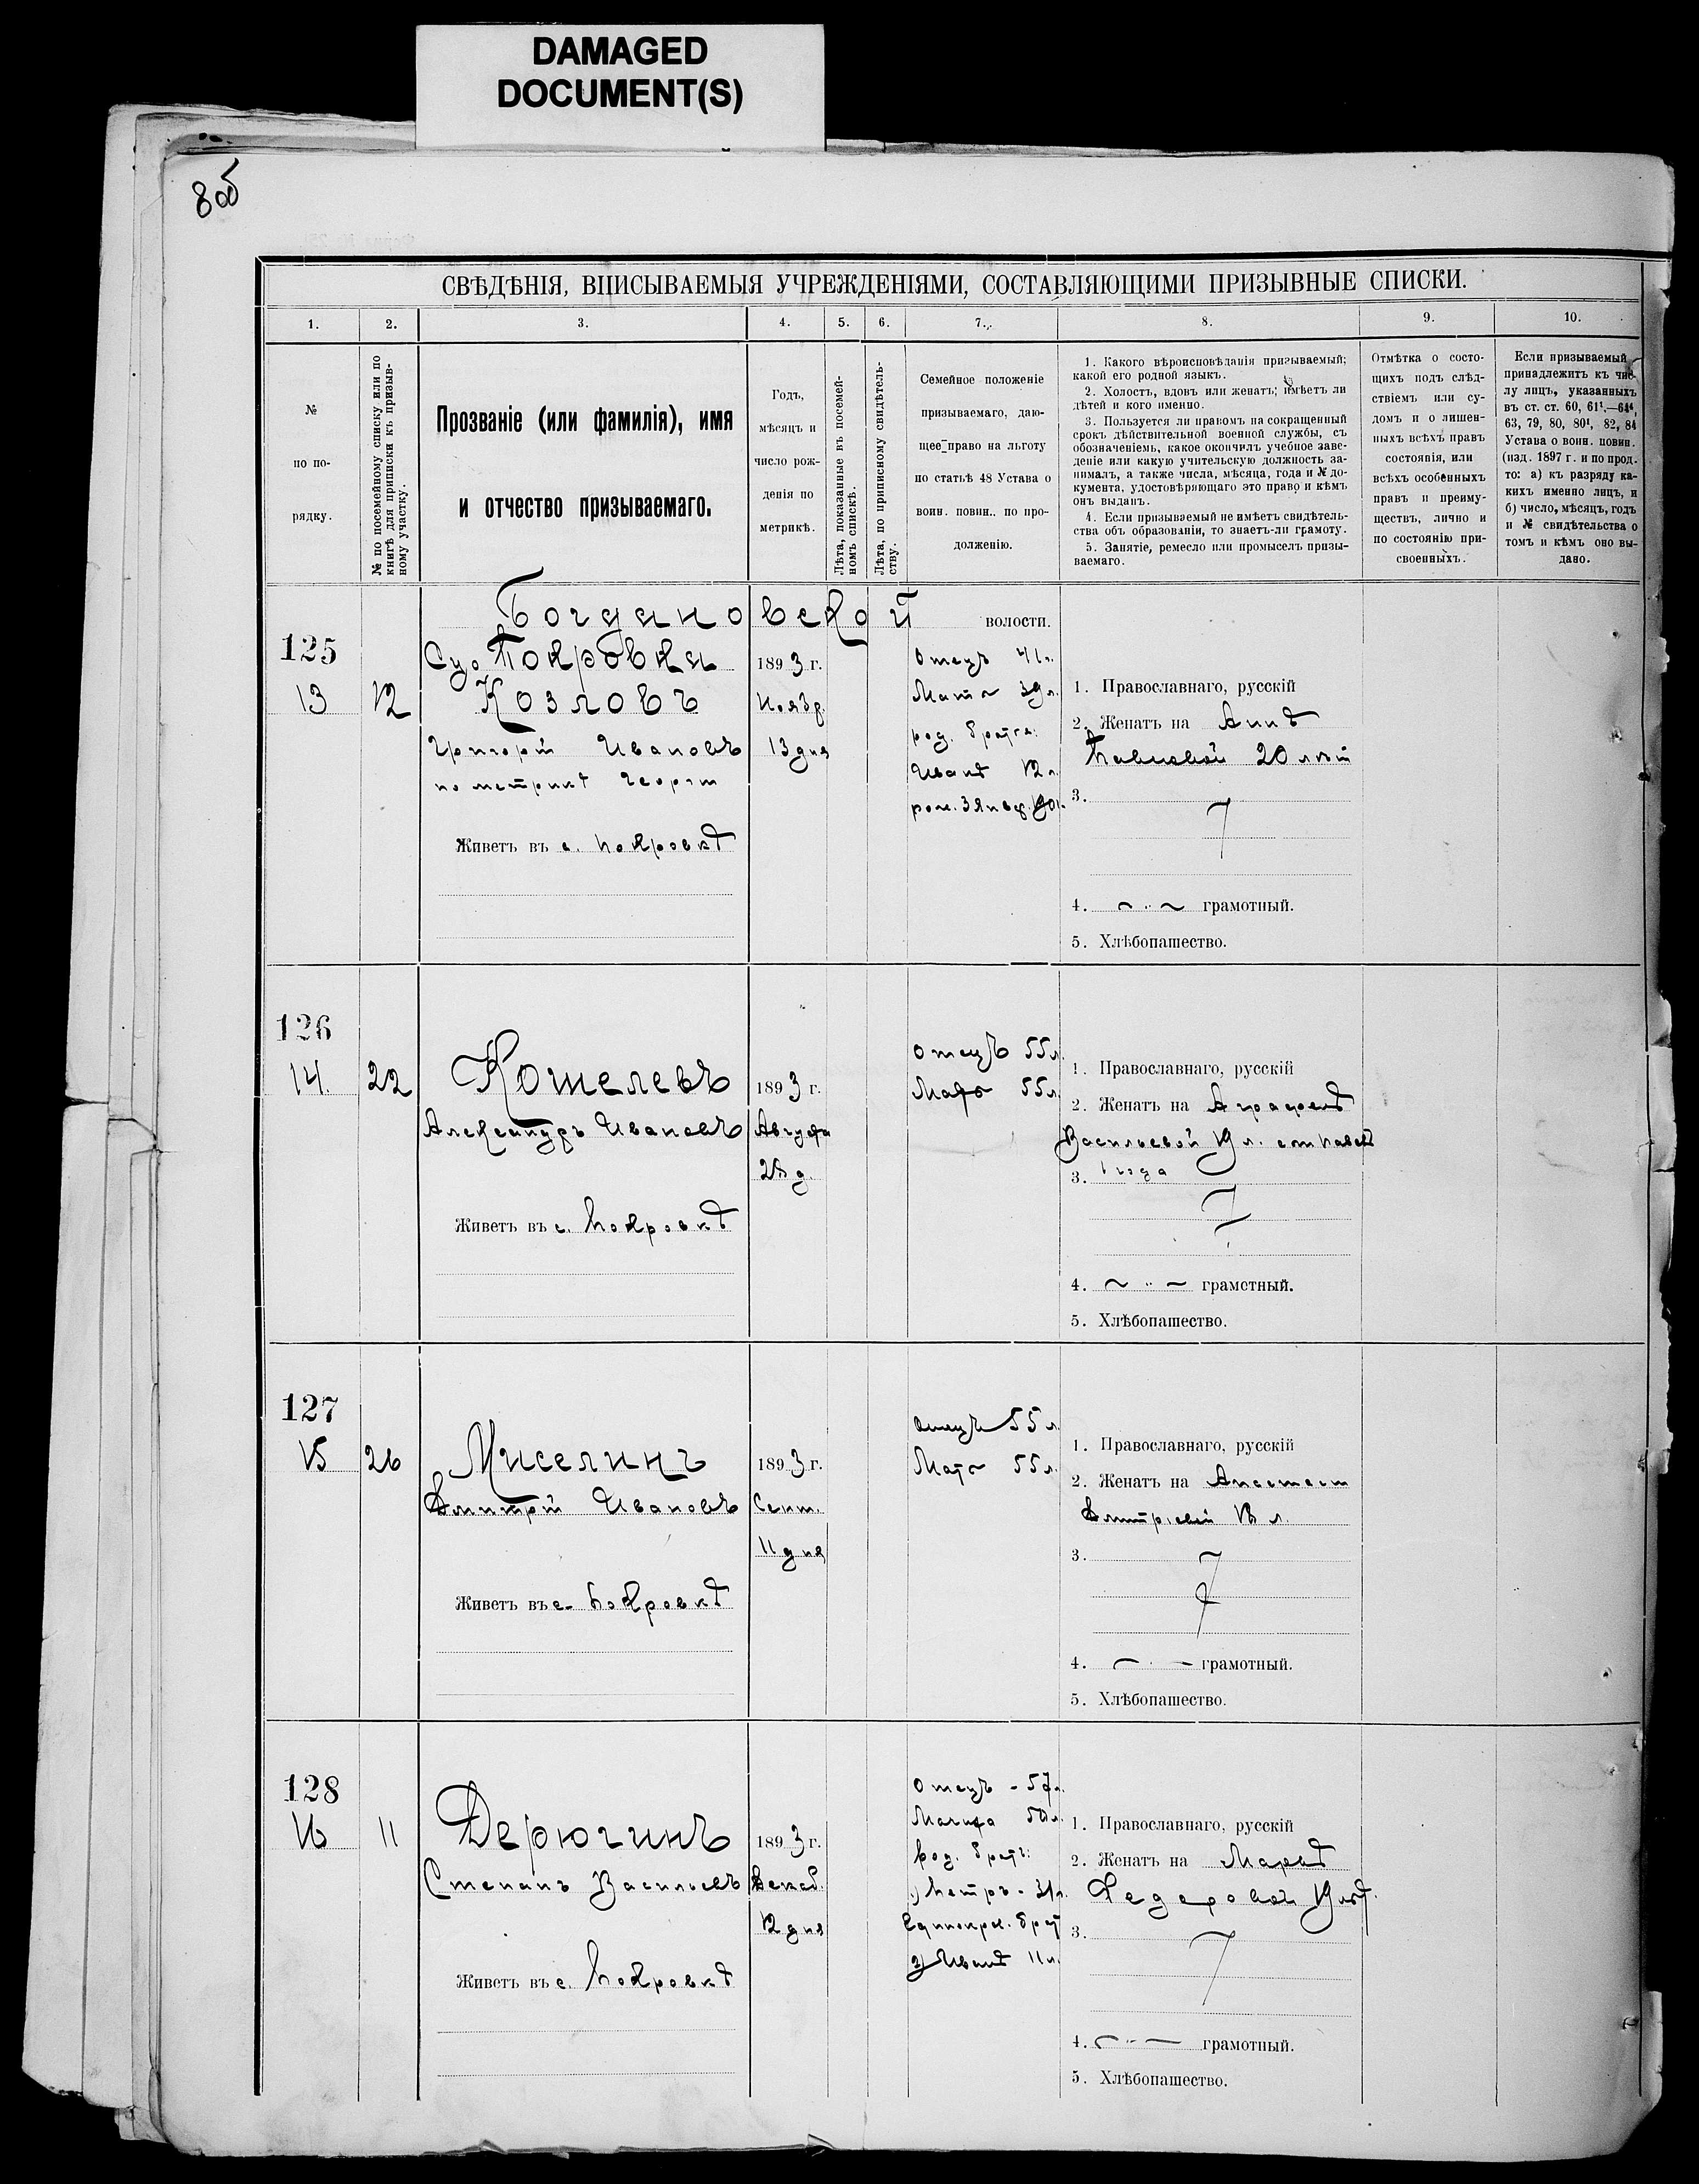 DAMAGED
DOCUMENT(S)
8об
СВѢДѢНІЯ, ВПИСЫВАЕМЫЯ УЧРЕЖДЕНІЯМИ, СОСТАВЛЯЮЩИМИ ПРИЗЫВНЫЕ СПИСКИ.
1. 2. 3. 4. 5. 6. 7. 8. 9. 10.
№
по по-
рядку.
№ по посемейному списку или по
книгѣ для приписки къ призыв-
ному участку.
Прозваніе (или фамилія), имя
и отчество призываемаго.
Годъ,
мѣсяцъ и
число рож-
денія по
метрикѣ.
Лѣта, показанные въ посемей-
номъ спискѣ.
Лѣта, по приписному свидѣтель-
ству.
Семейное положеніе
призываемаго, даю-
щее право на льготу
по статьѣ 48 Устава о
воин. повин. по про-
долженію.
1. Какого вѣроисповѣданія призываемый;
какой его родной языкъ.
2. Холостъ, вдовъ или женатъ; имѣетъ ли
дѣтей и кого именно.
3. Пользуется ли правомъ на сокращенный
срокъ дѣйствительной военной службы, съ
обозначеніемъ, какое окончилъ учебное заве-
деніе или какую учительскую должность за-
нималъ, а также числа, мѣсяца, года и № до-
кумента, удостовѣряющаго это право и кѣмъ
онъ выданъ.
4. Если призываемый не имѣетъ свидѣтель-
ства объ образованіи, то знаетъ-ли грамоту.
5. Занятіе, ремесло или промыселъ призы-
ваемаго.
Отмѣтка о состо-
щихъ подъ слѣд-
ствіемъ или су-
домъ и о лишен-
ныхъ всѣхъ правъ
состоянія, или
всѣхъ особенныхъ
правъ и преиму-
ществъ, лично и
по состоянію при-
своенныхъ.
Если призываемый
принадлежитъ къ чис-
лу лицъ, указанныхъ
въ ст. ст. 60, 61¹.—64⁴,
63, 79, 80, 80¹, 82, 84
Устава о воин. повин.
(изд. 1897 г. и по прод.
то: а) къ разряду ка-
кихъ именно лицъ, и
б) число, мѣсяцъ, годъ
и № свидѣтельства о
томъ и кѣмъ оно вы-
дано.
Богдановской волости.
125
Покровка
13 12 Козловъ
Григорій Ивановъ
по метрикѣ Георгій
Живетъ въ с. Покровкѣ
1893 г.
Ноябр.
13 дня
Отецъ 41 г.
Мать 39 л.
род. братъ:
Иванъ 12 л.
1. Православнаго, русскій
2. Женатъ на Аннѣ
Павловой 20 лѣт
3.
4. грамотный.
5. Хлѣбопашество.
126
14. 22 Кошелевъ
Александръ Ивановъ
Живетъ въ с. Покровкѣ
1893 г.
Августа
28 д.
Отецъ 55 л.
Мать 55 л.
1. Православнаго, русскій
2. Женатъ на Аграфенѣ
Васильевой 19 л. сын Павелъ
3. 1 года
4. грамотный.
5. Хлѣбопашество.
127
15 26 Миселинъ
Дмитрій Ивановъ
Живетъ въ с. Покровкѣ
1893 г.
Сент.
11 дня
Отецъ 55 л.
Мать 55 л.
1. Православнаго, русскій
2. Женатъ на
Дмитріевой 18 л.
3.
4. грамотный.
5. Хлѣбопашество.
128
16 11 Дерюгинъ
Степанъ Васильевъ
Живетъ въ с. Покровкѣ
1893 г.
Декаб.
12 дня
Отецъ - 57 л.
Мачиха 50 л.
Род. братъ:
1) Петръ - 31 л.
Единокров. брат
2) Иванъ 11 л.
1. Православнаго, русскій
2. Женатъ на Марьѣ
Федоровой 19 лѣт.
3.
4. грамотный.
5. Хлѣбопашество.